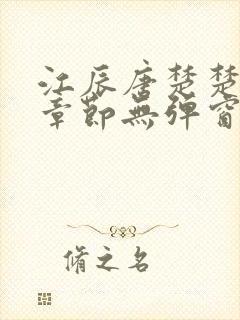 江辰唐楚楚
章節無彈窗
脩之名